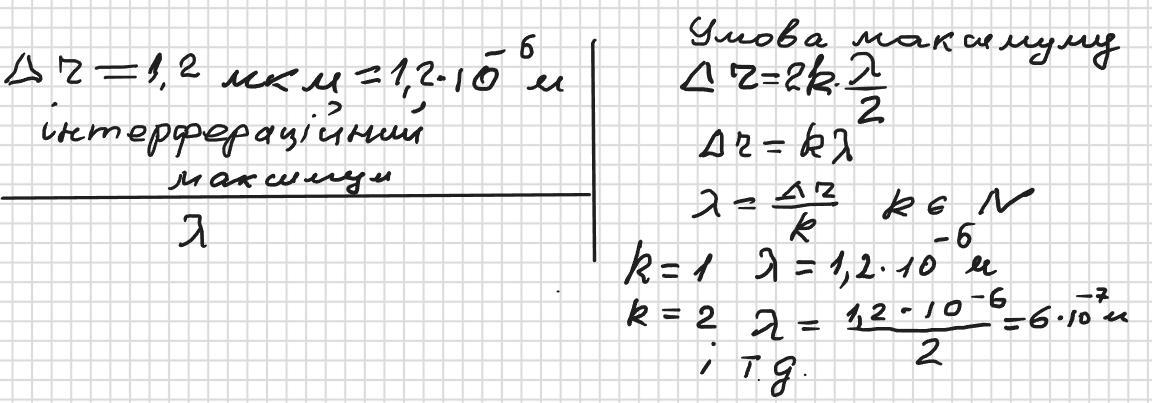 Δr = 1,2 мкм = 1,2·10⁻⁶ м
інтерфераційний
максимум
λ
Умова максимуму
Δr = 2k·λ/2
Δr = kλ
λ = Δr/k k ∈ N
k = 1 λ = 1,2·10⁻⁶ м
k = 2 λ = 1,2·10⁻⁶/2 = 6·10⁻⁷ м
і т.д.